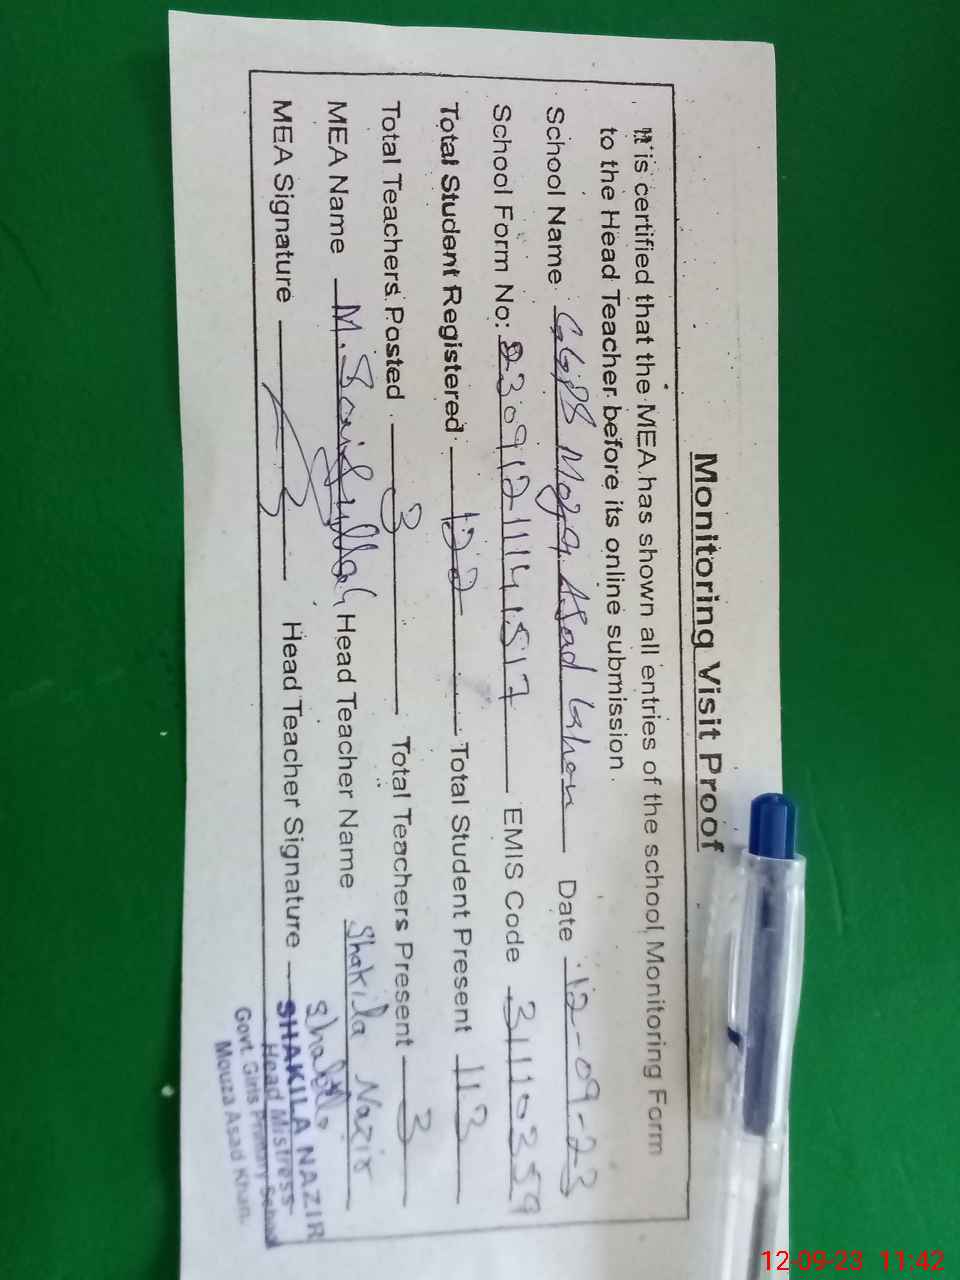 Monitoring Visit Proof
It is certified that the MEA has shown all entries of the school Monitoring Form
to the Head Teacher before its online submission.
School Name GGPS Moza Asad Khan Date 12-09-23
School Form No: 23091211141517 EMIS Code 31110359
Total Student Registered 122 Total Student Present 113
Total Teachers Posted 3 Total Teachers Present 3
MEA Name M. Saifullah Head Teacher Name Shakila Nazir
MEA Signature Head Teacher Signature Shakila
SHAKILA NAZIR
Head Mistress
Govt. Girls Primary School
Mouza Asad Khan.
12-09-23 11:42